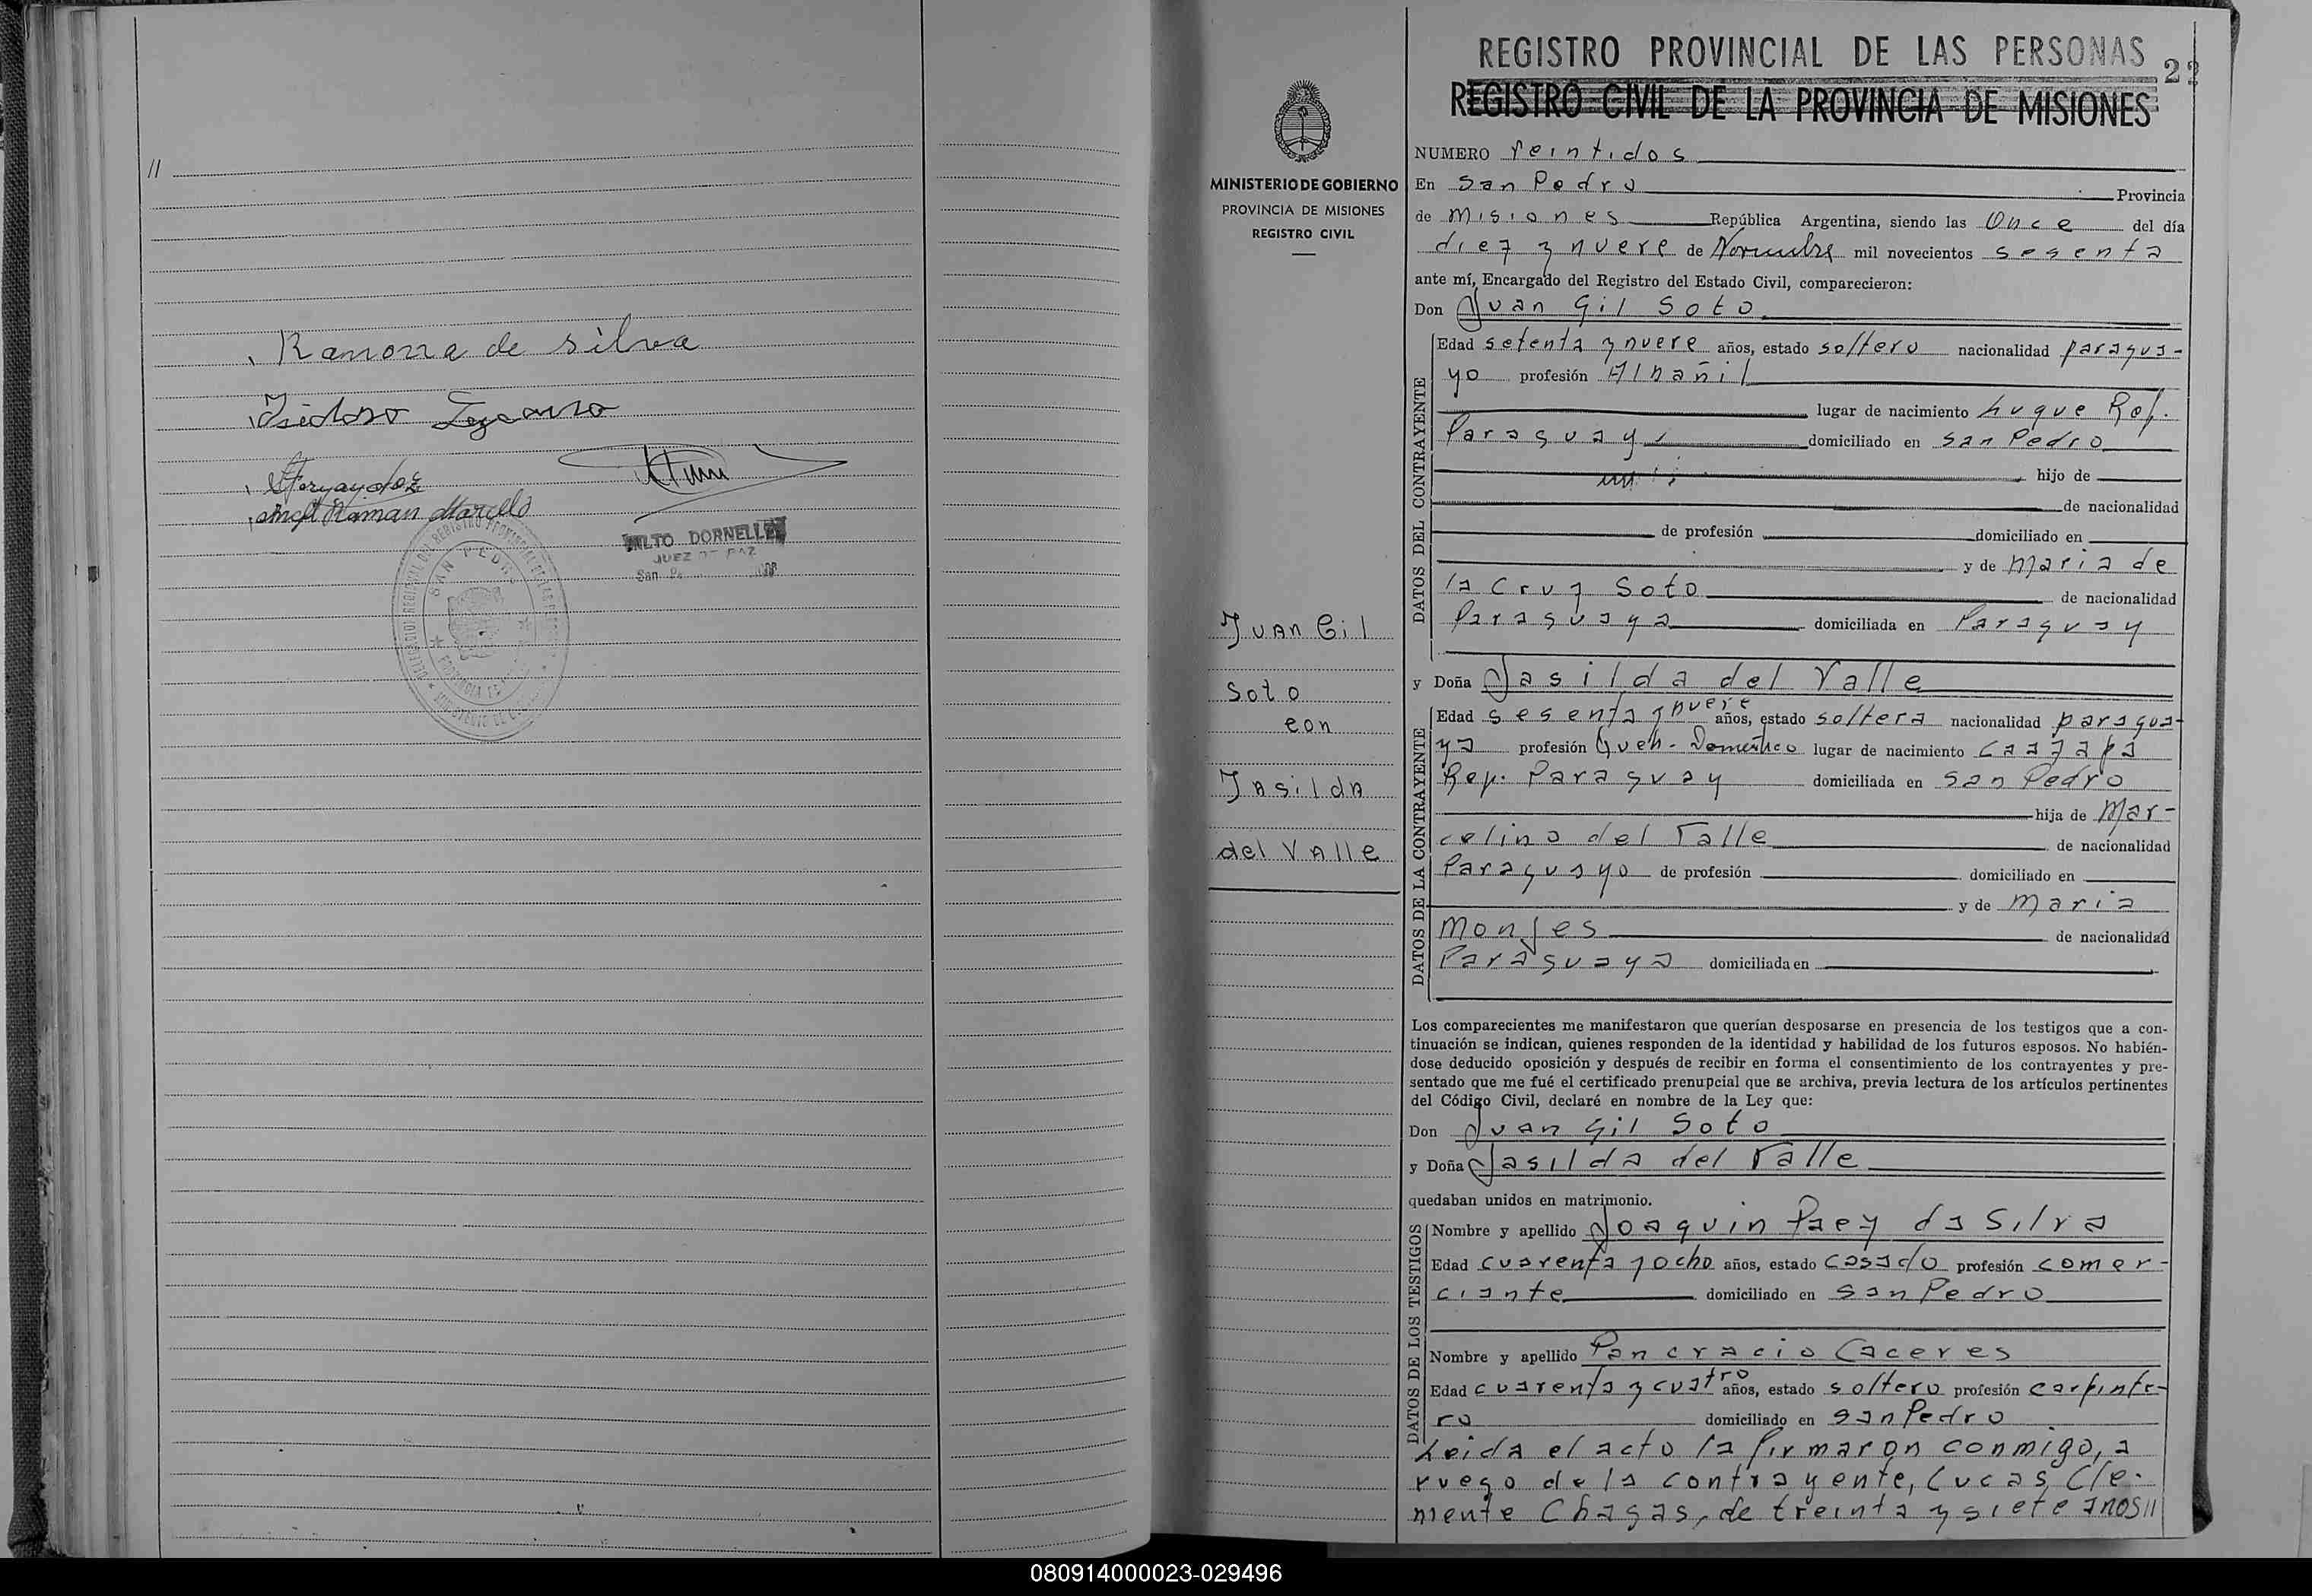 //
Ramona de Silva
Isidoro
MILTO DORNELLES
JUEZ DE PAZ
San Pe
SAN PEDRO
MINISTERIO DE GOBIERNO
PROVINCIA DE MISIONES
REGISTRO CIVIL
Juan Gil
Soto
con
Jasilda
del Valle
REGISTRO PROVINCIAL DE LAS PERSONAS
22
REGISTRO CIVIL DE LA PROVINCIA DE MISIONES
NUMERO Veintidos
En San Pedro Provincia
de Misiones República Argentina, siendo las Once del día
diez y nueve de Noviembre mil novecientos sesenta
ante mí, Encargado del Registro del Estado Civil, comparecieron:
Don Juan Gil Soto
DATOS DEL CONTRAYENTE
Edad setenta y nueve años, estado soltero nacionalidad paragua-
yo profesión Albañil
lugar de nacimiento Luque Rep.
Paraguay domiciliado en San Pedro
hijo de
de nacionalidad
de profesión domiciliado en
y de Maria de
la Cruz Soto de nacionalidad
Paraguaya domiciliada en Paraguay
y Doña Jasilda del Valle
DATOS DE LA CONTRAYENTE
Edad sesenta y nueve años, estado soltera nacionalidad paragua-
ya profesión Queh. Domestico lugar de nacimiento Caazapá
Rep. Paraguay domiciliada en San Pedro
hija de Mar-
celino del Valle de nacionalidad
Paraguayo de profesión domiciliado en
y de Maria
Monges de nacionalidad
Paraguaya domiciliada en
Los comparecientes me manifestaron que querían desposarse en presencia de los testigos que a con-
tinuación se indican, quienes responden de la identidad y habilidad de los futuros esposos. No habién-
dose deducido oposición y después de recibir en forma el consentimiento de los contrayentes y pre-
sentado que me fué el certificado prenupcial que se archiva, previa lectura de los artículos pertinentes
del Código Civil, declaré en nombre de la Ley que:
Don Juan Gil Soto
y Doña Jasilda del Valle
quedaban unidos en matrimonio.
DATOS DE LOS TESTIGOS
Nombre y apellido Joaquin Paez da Silva
Edad cuarenta y ocho años, estado casado profesión comer-
ciante domiciliado en San Pedro
Nombre y apellido Pancracio Caceres
Edad cuarenta y cuatro años, estado soltero profesión carpinte-
ro domiciliado en San Pedro
Leida el acto la firmaron conmigo, a
ruego de la contrayente, Lucas Cle-
mente Chagas, de treinta y siete años//
080914000023-029496